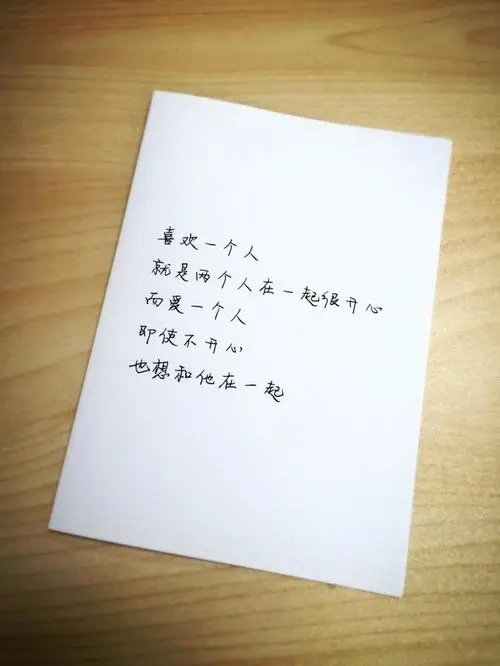 喜欢一个人
就是两个人在一起很开心
而爱一个人
即使不开心
也想和他在一起